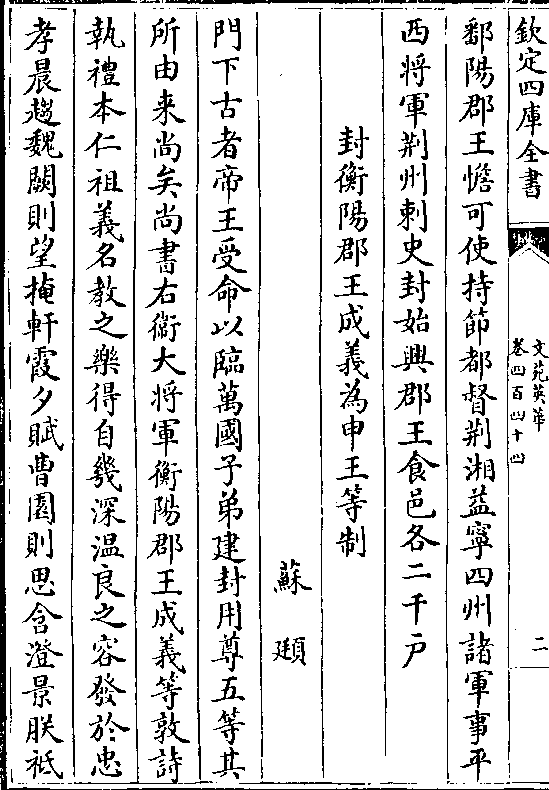 欽定四庫全書
文苑英華
卷四百四十四
二
鄱陽郡王憺可使持節都督荆湘益寧四州諸軍事平
西將軍荆州刺史封始興郡王食邑各二千户
封衡陽郡王成義為申王等制
蘇頲
門下古者帝王受命以臨萬國子弟建封用尊五等其
所由来尚矣尚書右衛大将軍衡陽郡王成義等敦詩
執禮本仁祖義名教之樂得自幾深温良之容發於忠
孝晨趨魏闕則望掩軒霞夕賦曹園則思含澄景朕祗